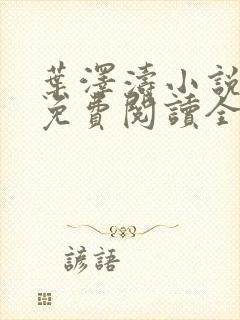 葉澤濤小說
免費閱讀全
諺語